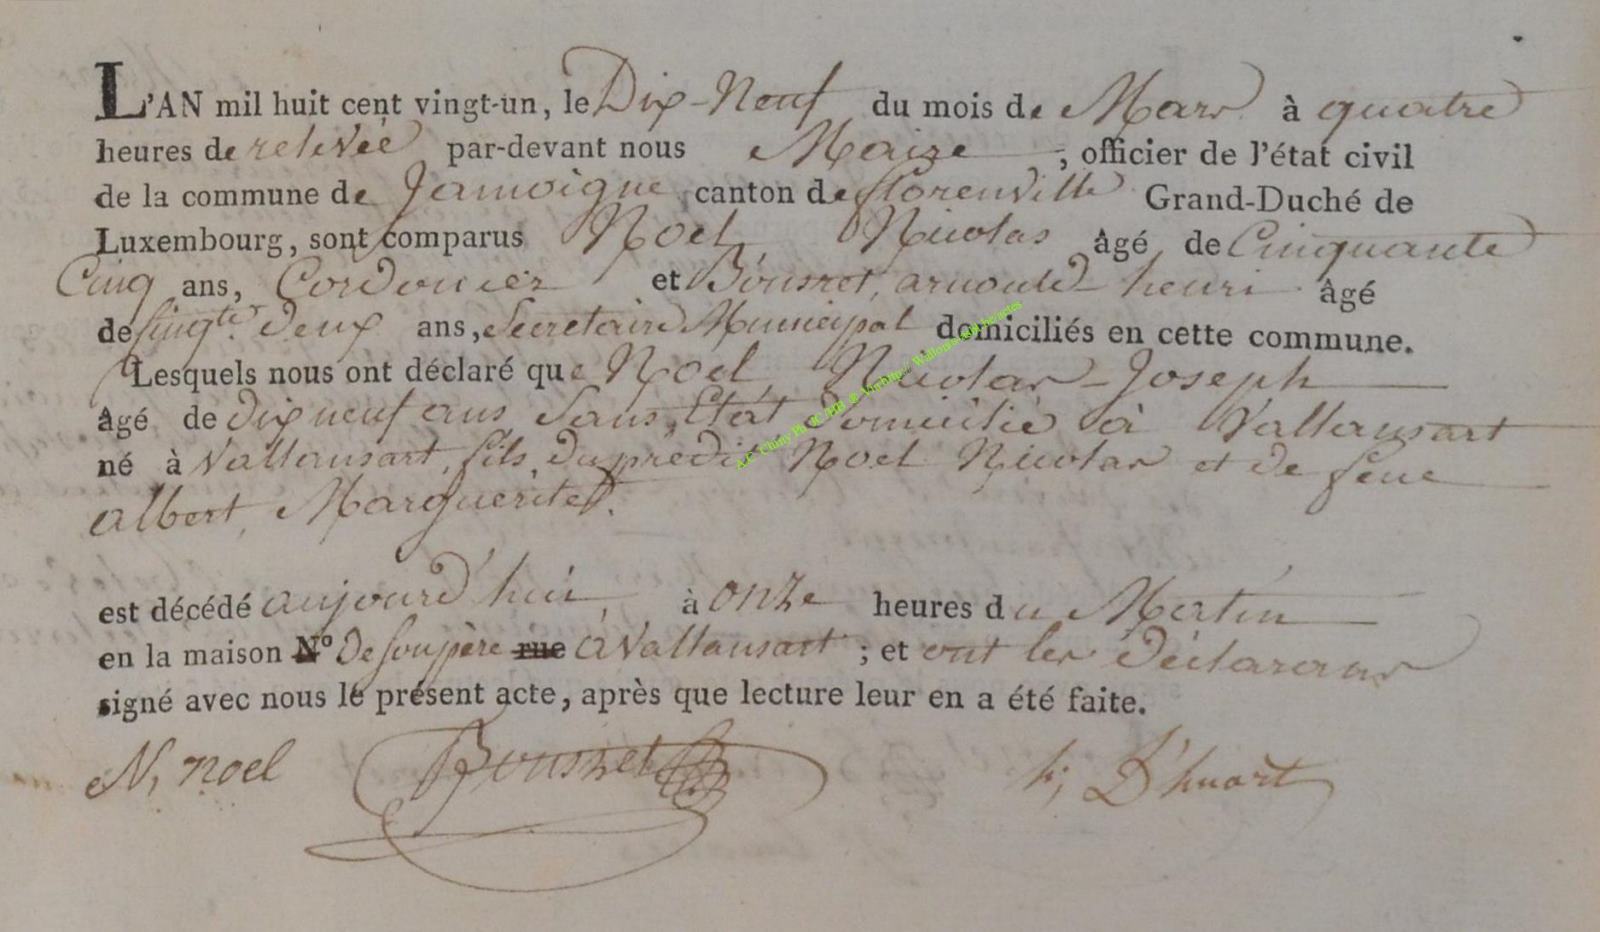 L'AN mil huit cent vingt-un, le Dix-Neuf du mois de Mars à quatre
heures de relevée par-devant nous Maire, officier de l'état civil
de la commune de Jamoigne canton de florenville Grand-Duché de
Luxembourg, sont comparus Noel Nicolas âgé de Cinquante
Cinq ans, Cordonier et Bousret, arnould henri âgé
de Vingte Deux ans, Secretaire Municipal domiciliés en cette commune.
Lesquels nous ont déclaré que Noel, Nicolas-Joseph
âgé de dix neuf ans, Sans Etat Domicilié à Vallansart
né à Vallansart, fils du prédit Noel Nicolas et de feue
Albert, Marguerite.
est décédé aujourd'hui, à onze heures du Matin
en la maison N° De son père rue à Vallansart ; et ont les déclarans
signé avec nous le présent acte, après que lecture leur en a été faite.
N, noel Bousret h; D'huart